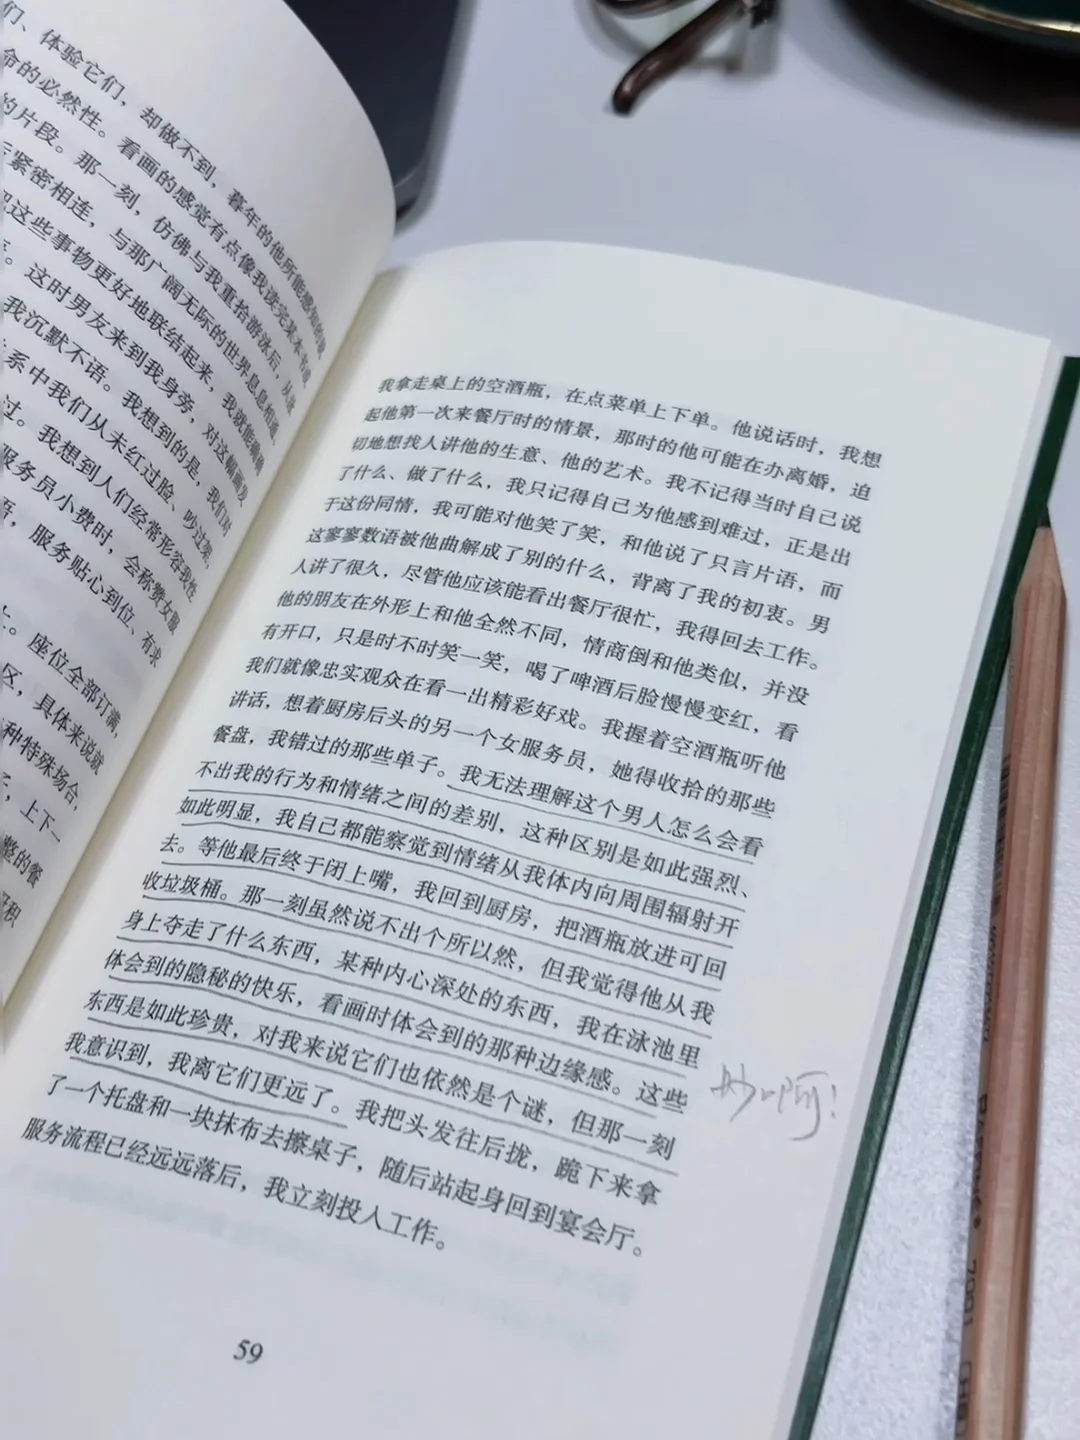 们、体验它们，却做不到，暮年的他所能感知的
命的必然性。看画的感觉有点像我读完某本书
的片段。那一刻，仿佛与我重拾游泳后，从
紧密相连，与那广阔无际的世界息息相通，
这些事物更好地联结起来，我就能
。这时男友来到我身旁，对这幅画
我沉默不语。我想到的是，我们
系中我们从未红过脸、吵过架，
过。我想到人们经常形容我性
服务员小费时，会称赞女服
，服务贴心到位、有求
。座位全部订满，
区，具体来说就
种特殊场合，
，上下一
整的餐
积
我拿走桌上的空酒瓶，在点菜单上下单。他说话时，我想
起他第一次来餐厅时的情景，那时的他可能在办离婚，迫
切地想找人讲他的生意、他的艺术。我不记得当时自己说
了什么、做了什么，我只记得自己为他感到难过，正是出
于这份同情，我可能对他笑了笑，和他说了只言片语，而
这寥寥数语被他曲解成了别的什么，背离了我的初衷。男
人讲了很久，尽管他应该能看出餐厅很忙，我得回去工作。
他的朋友在外形上和他全然不同，情商倒和他类似，并没
有开口，只是时不时笑一笑，喝了啤酒后脸慢慢变红，看
我们就像忠实观众在看一出精彩好戏。我握着空酒瓶听他
讲话，想着厨房后头的另一个女服务员，她得收拾的那些
餐盘，我错过的那些单子。我无法理解这个男人怎么会看
不出我的行为和情绪之间的差别，这种区别是如此强烈、
如此明显，我自己都能察觉到情绪从我体内向周围辐射开
去。等他最后终于闭上嘴，我回到厨房，把酒瓶放进可回
收垃圾桶。那一刻虽然说不出个所以然，但我觉得他从我
身上夺走了什么东西，某种内心深处的东西，我在泳池里
体会到的隐秘的快乐，看画时体会到的那种边缘感。这些
东西是如此珍贵，对我来说它们也依然是个谜，但那一刻
我意识到，我离它们更远了。我把头发往后拢，跪下来拿
了一个托盘和一块抹布去擦桌子，随后站起身回到宴会厅。
服务流程已经远远落后，我立刻投入工作。
妙啊！
59